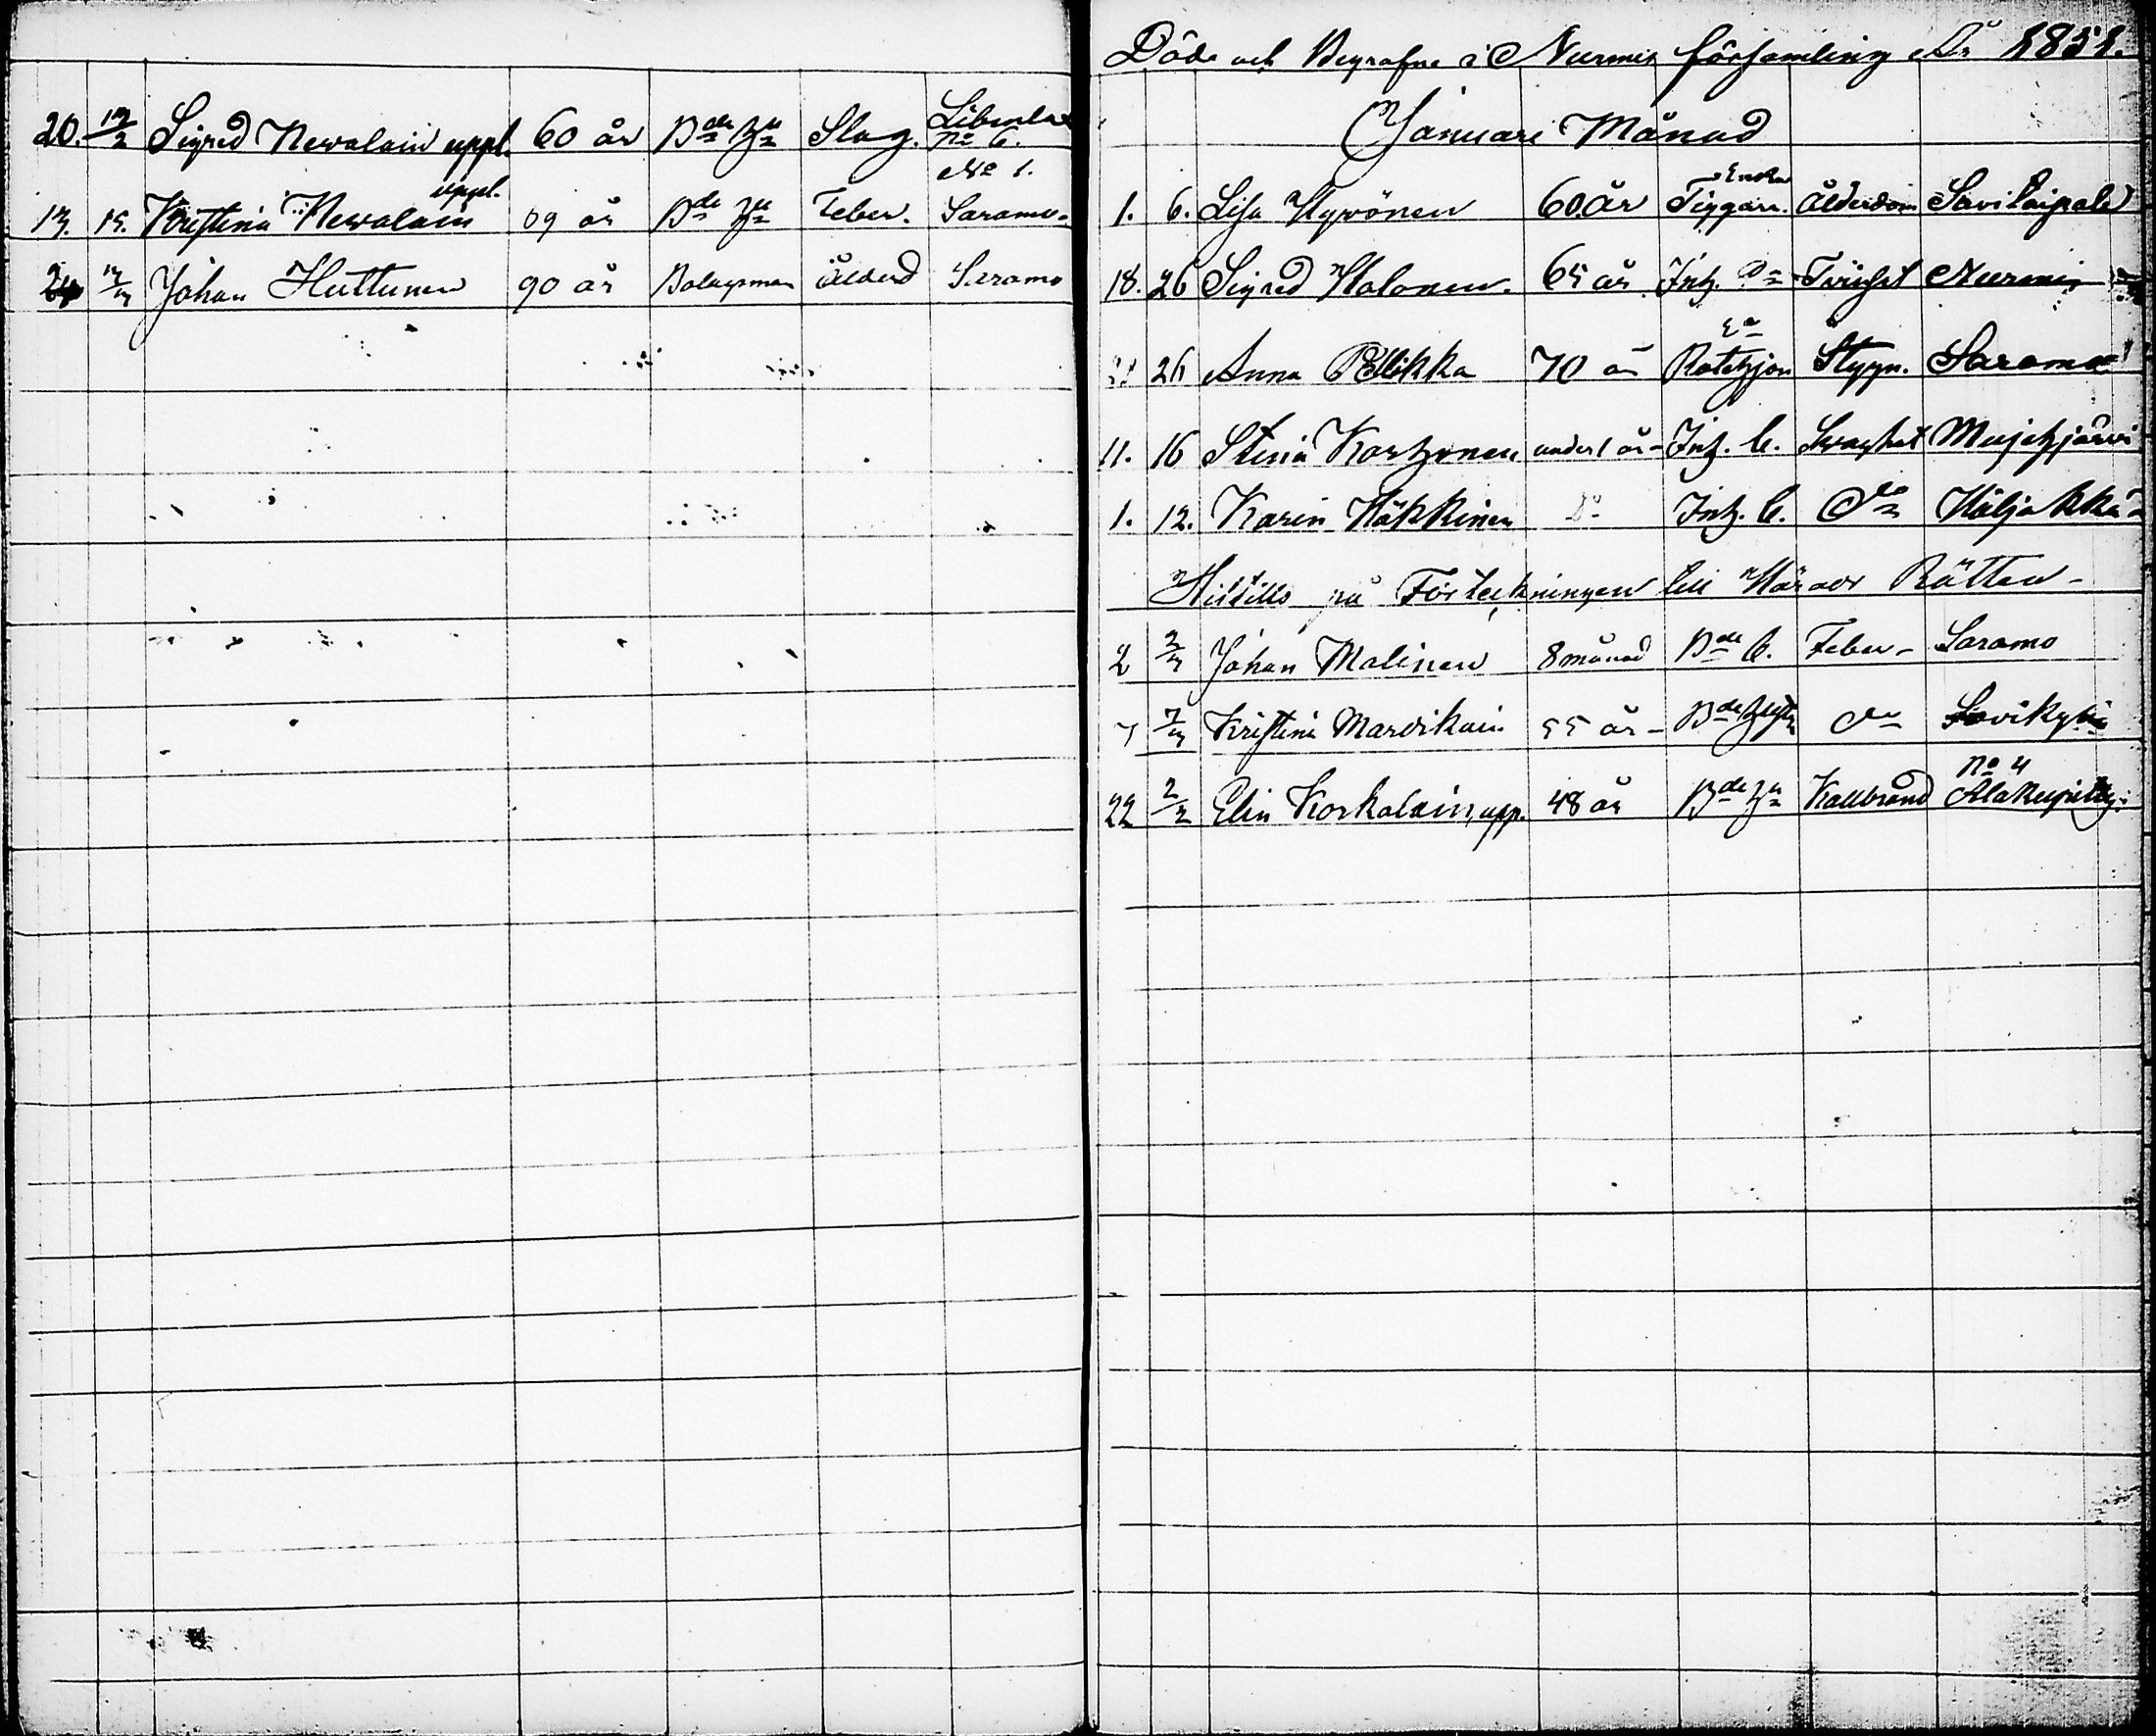 20. 12/2 Sigred Nevalain uppl. 60 år Bde Hu Slag. Libenla No 6.
No 1.
uppl.
13. 15. Kristina Nevalain 69 år Bde Hu Feber. Saramo
24 Johan Huttunen 90 år Bolagsman Ålderd Saramo
Döde och Begrafne i Nurmis församling År 1851.
Januari Månad
Enka
1. 6. Lisa Hyvönen 60 år Tiggare. Ålderdom Savitaipale
18. 26 Sigred Halonen. 65 år Inh. Do Nurmis
Ea
26 Anna Pellikka 70 år Rotehjon Stygn. Saramo
11. 16 Stina Korhonen under 1 år Inh. b. Svaghet Mujejärvi
1. 12. Karin Häkkinen Do Inh. b. do Höljäkkä
Hittills på Förteckningen till Härads Rätten
2 2/3 Johan Malinen 8 månad Bde b. Feber Saramo
7 7/3 Kristina Mardikain 55 år Bde do Savikylä
No 4
22 2/2 Elin Korkalain, upp. 48 år Bde Hu Kallbrand